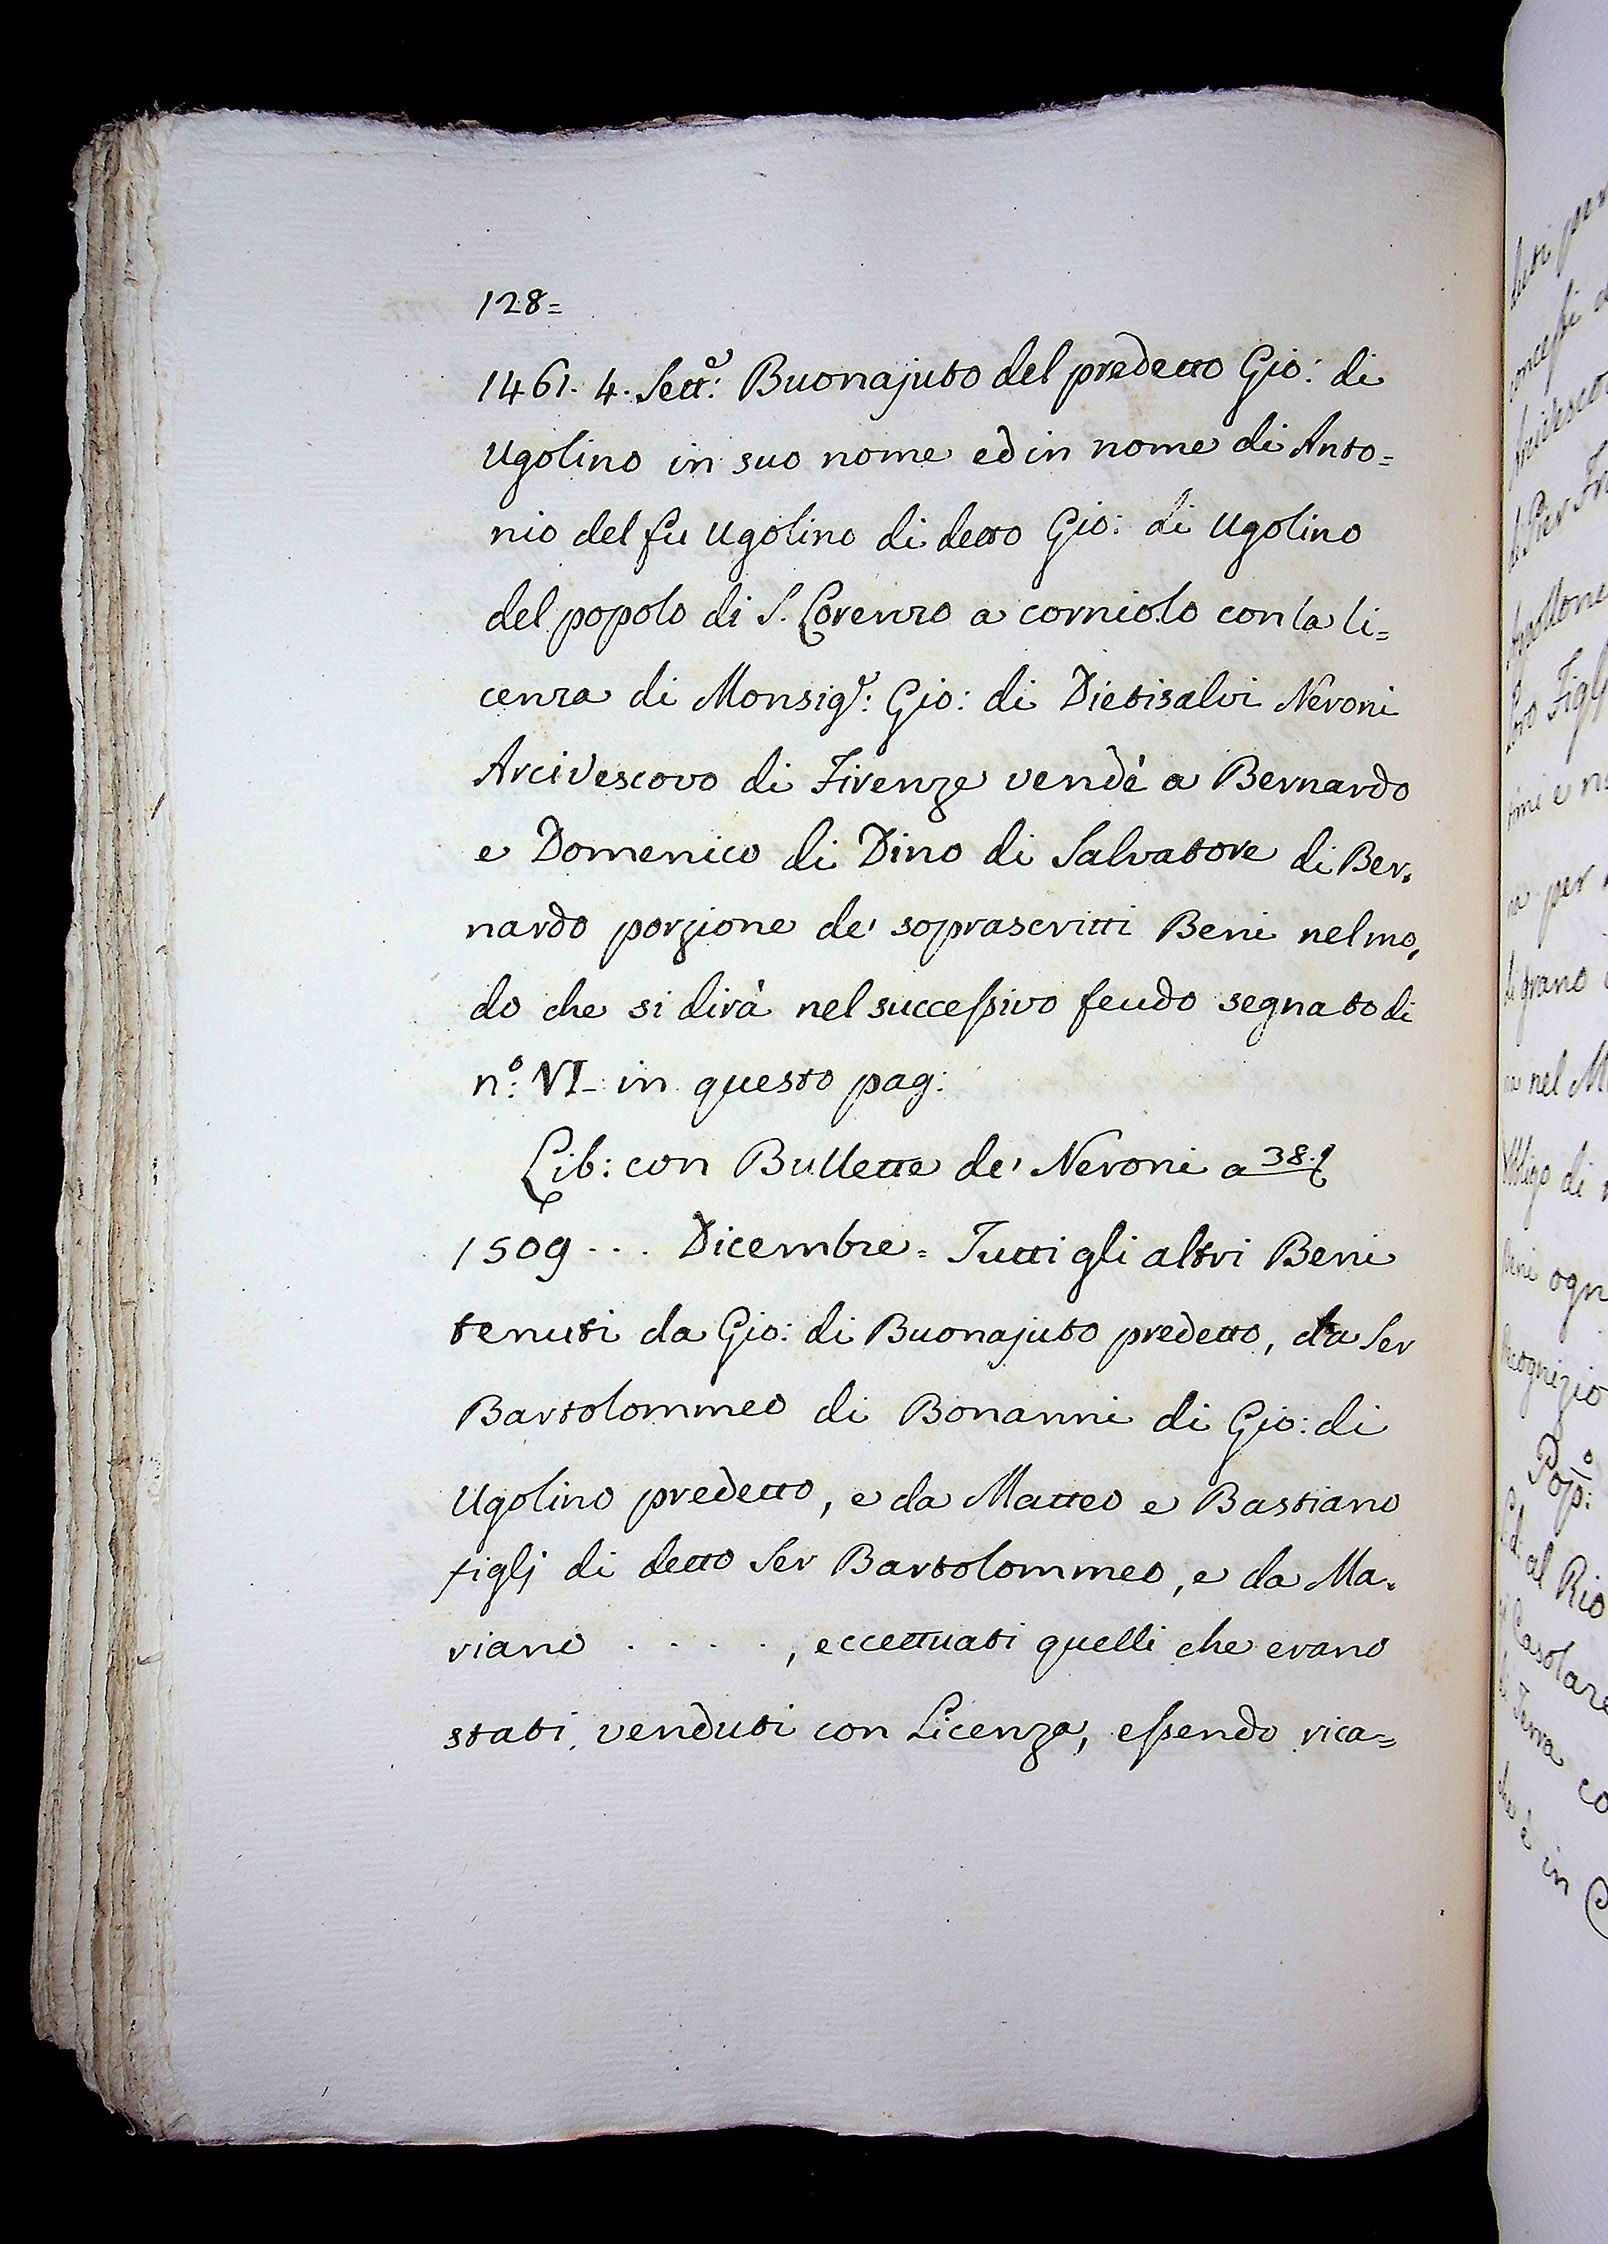 128=
1461. 4. Sett.e: Buonajuto del predetto Gio: di
Ugolino in suo nome ed in nome di Anto=
nio del fu Ugolino di detto Gio: di Ugolino
del popolo di S. Lorenzo a corniolo con la li=
cenza di Monsig.r: Gio: di Dietisalvi Neroni
Arcivescovo di Firenze vendè a Bernardo
e Domenico di Dino di Salvatore di Ber=
nardo porzione de' soprascritti Beni nel mo=
do che si dirà nel successivo feudo segnato di
n.o: VI- in questo pag:
Lib: con Bullette de' Neroni a 38.
1509 ... Dicembre = Tutti gli altri Beni
tenuti da Gio: di Buonajuto predetto, da Ser
Bartolommeo di Bonanni di Gio: di
Ugolino predetto, e da Matteo e Bastiano
figlj di detto Ser Bartolommeo, e da Ma=
riano . . . . ., eccettuati quelli che erano
stati venduti con Licenza, essendo rica=